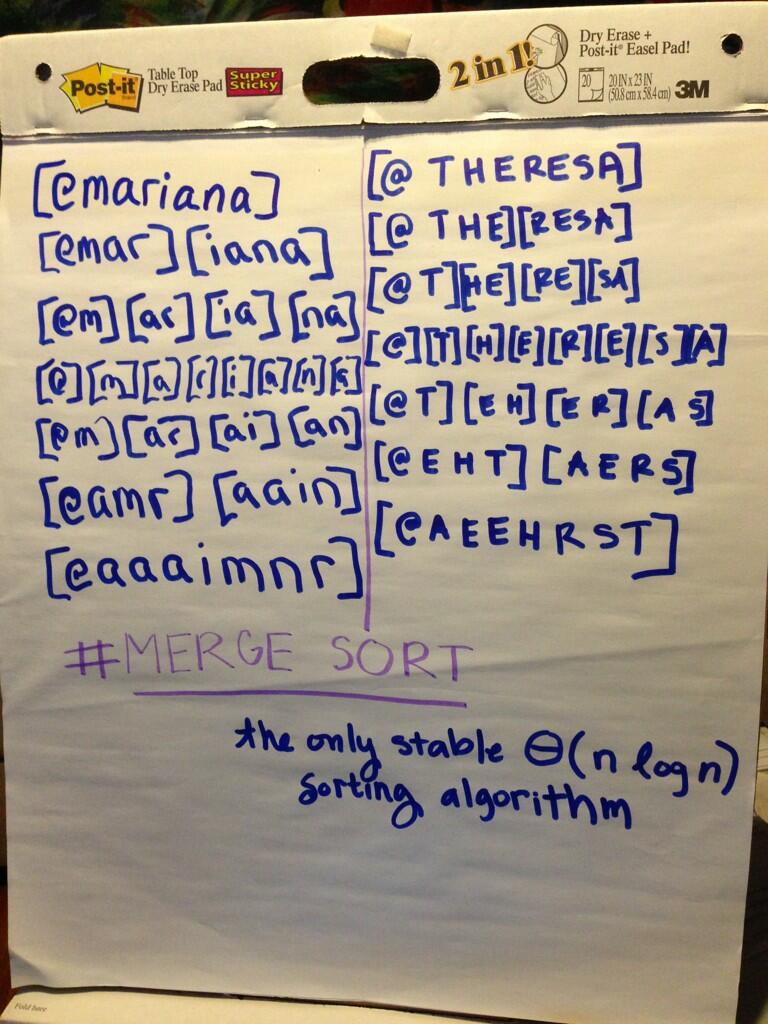 Post-it
Table Top
Dry Erase Pad
Super
Sticky
2 in 1!
Dry Erase +
Post-it® Easel Pad!
20
20 IN x 23 IN
(50.8 cm x 58.4 cm)
3M
[@mariana]
[@mar][iana]
[@m][ar][ia][na]
[@][m][a][r][i][a][n][a]
[@m][ar][ai][an]
[@amr][aain]
[@aaaimnr]
[@ THERESA]
[@ THE][RESA]
[@ T][HE][RE][SA]
[@][T][H][E][R][E][S][A]
[@ T][EH][ER][AS]
[@EHT][AERS]
[@AEEHRST]
#MERGE SORT
the only stable Θ(n log n)
sorting algorithm
Fold here